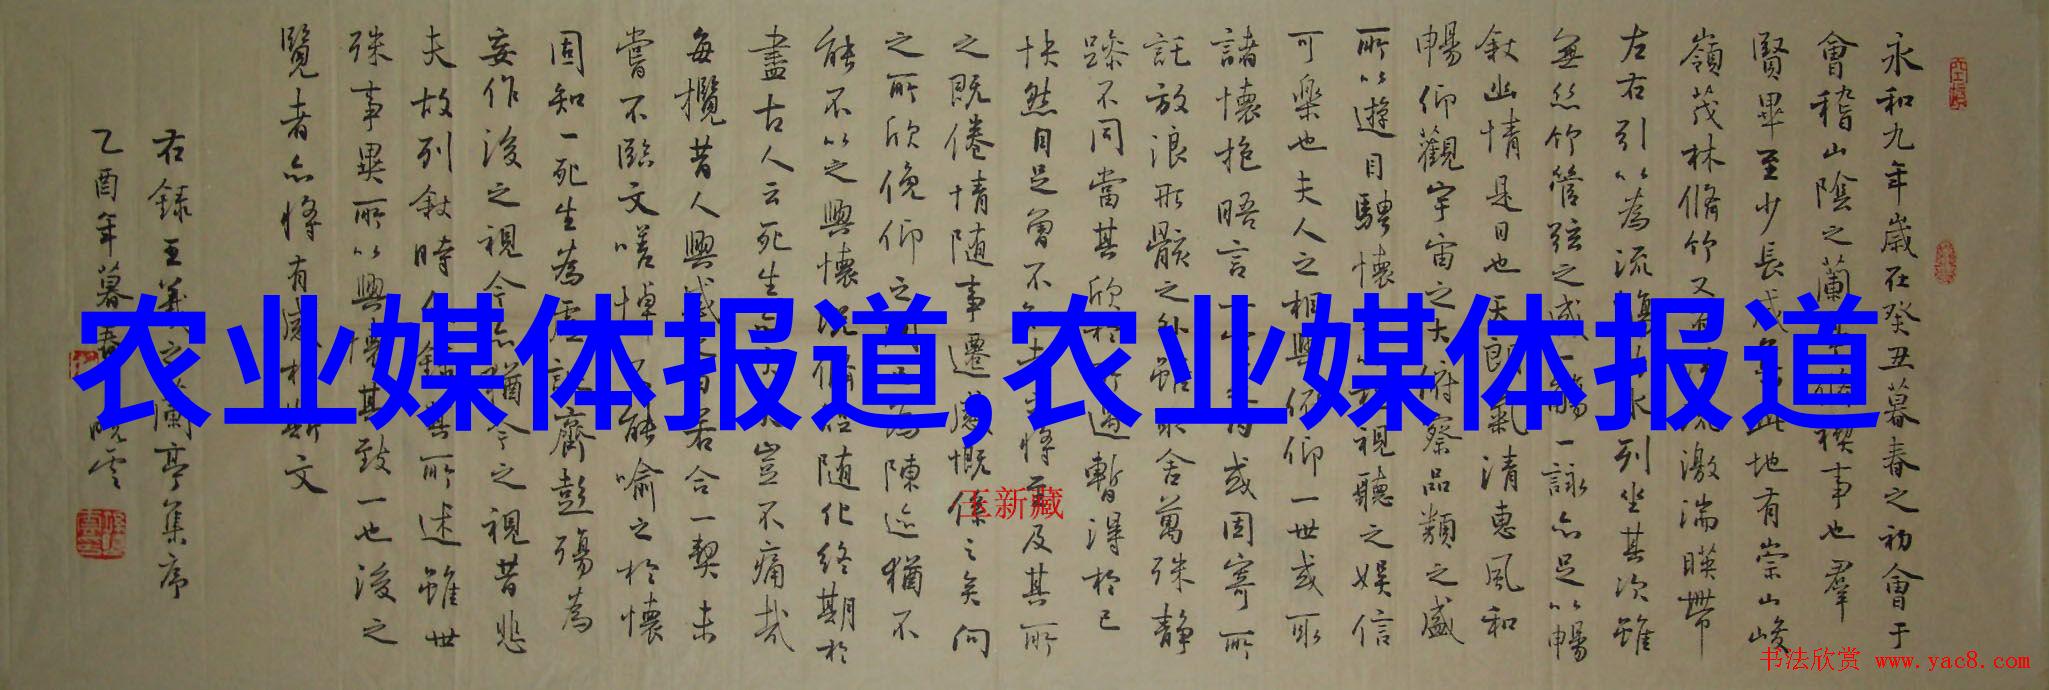 永和九年歲在癸丑暮春之初會于
會稽山陰之蘭事也羣
賢畢至少長咸此地有崇山峻
嶺茂林脩竹又激湍暎帶
左右引以為流水列坐其次雖
無絲竹管弦之盛一觴一詠亦足以暢
敘幽情是日也天朗氣清惠風和
暢仰觀宇宙之大俯察品類之盛
所以遊目騁懷視聽之娛信
可樂也夫人之相與俯仰一世或取
諸懷抱晤言一或因寄所
託放浪形骸之外雖取舍萬殊静
躁不同當其欣於遇暫得於己
快然自足曾不將至及其所
之既倦情随事遷感慨係之矣向
之所欣俛仰之為陳迹猶不
能不以之興懷況脩短随化終期於
盡古人云死生亦矣豈不痛哉
每攬昔人興感之由若合一契未
嘗不臨文嗟悼不能喻之於懷
固知一死生為虛誕齊彭殤為
妄作後之視今亦猶今之視昔悲
夫故列敘時人其所述雖世
殊事異所以興懷其致一也後之
覽者亦將有感於斯文
右錄王羲之蘭亭集序
乙酉年暮春曉雲
农业媒体报道,农业媒体报道
王新藏
书法欣赏 www.yac8.com